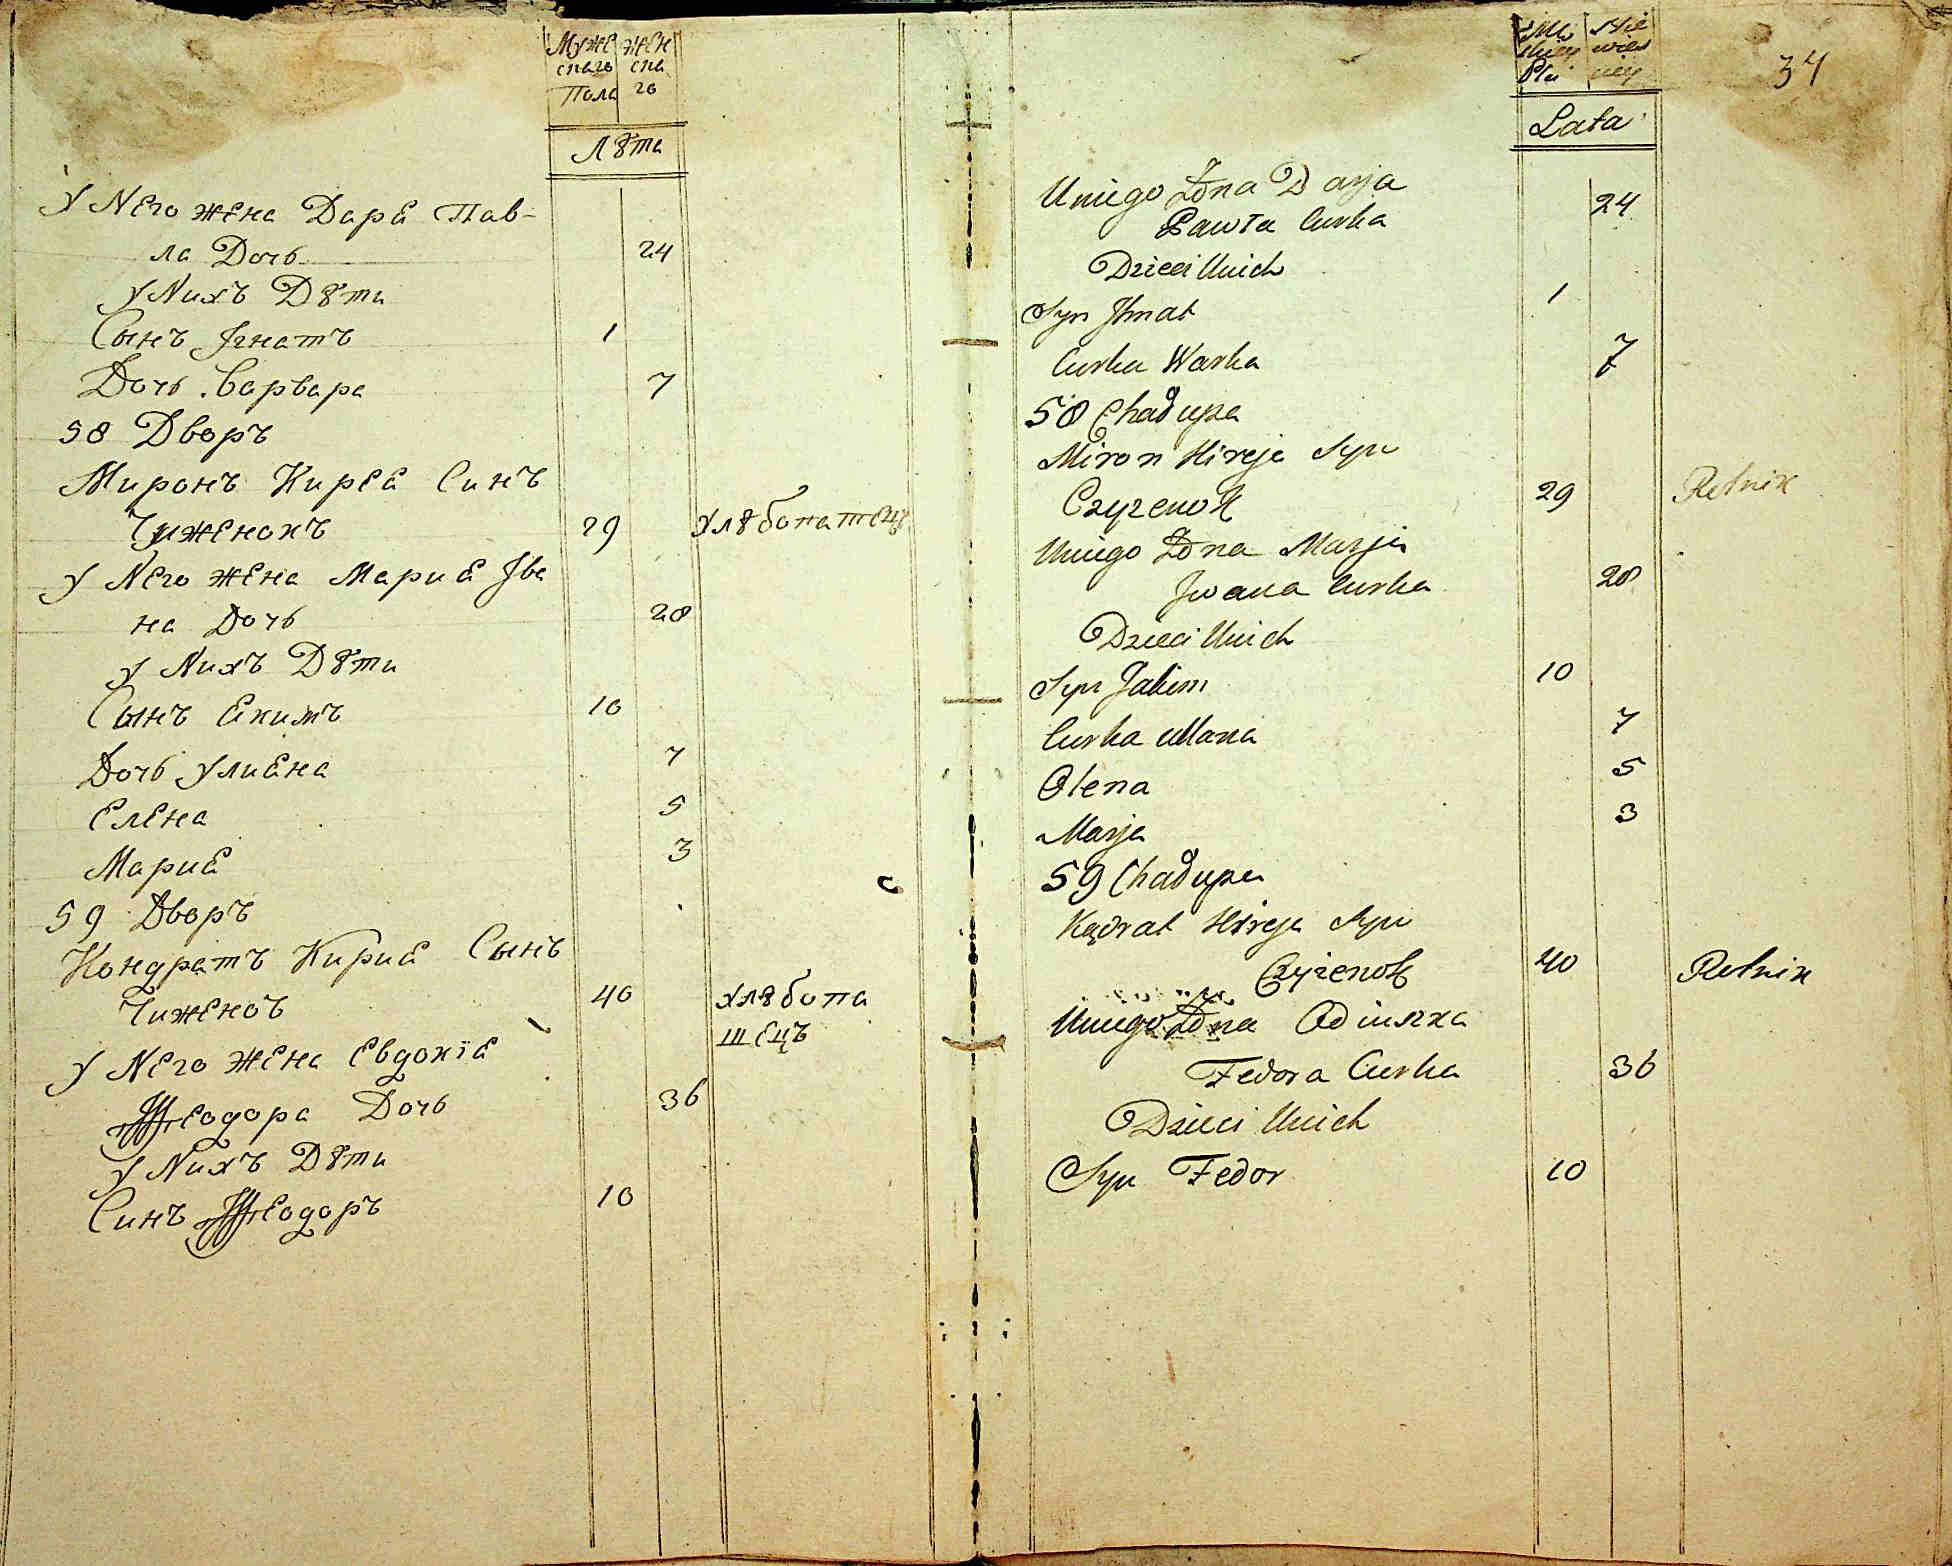 Муже жен
скаго ска
Пола го
Лѣта
У Него жена Дарѣ Пав-
ла Дочь 24
у Нихъ Дѣти
Сынъ Iгнатъ 1
Дочь Варвара 7
58 Дворъ
Миронъ Кирея Синъ
Чиженокъ 29 хлѣбопашецъ
у Него жена Мария Iва
на Дочь 28
у Нихъ Дѣти
Сынъ Екимъ 10
Дочь Улияна 7
Елена 5
Мария 3
59 Дворъ
Кондратъ Кирия Сынъ
Чиженокъ 40 хлѣбопа
шецъ
у Него жена Евдокiя
Феодора Дочь 36
у Нихъ Дѣти
Синъ Феодоръ 10
34
Płci
Lata
Uniego Żona Darja 24
Pawła Curka
Dzieci Unich
Syn Ihnat 1
Curka Warka 7
58 Chałupa
Miron Kireja Syn
Czyżenok 29 Rolnik
Uniego Żona Marja
Jwana Curka 28
Dzieci Unich
Syn Jakim 10
Curka Ulana 7
Olena 5
Marja 3
59 Chałupa
Kądrat Kireja Syn
Czyżenok 40 Rolnik
Uniego Żona
Fedora Curka 36
Dzieci Unich
Syn Fedor 10